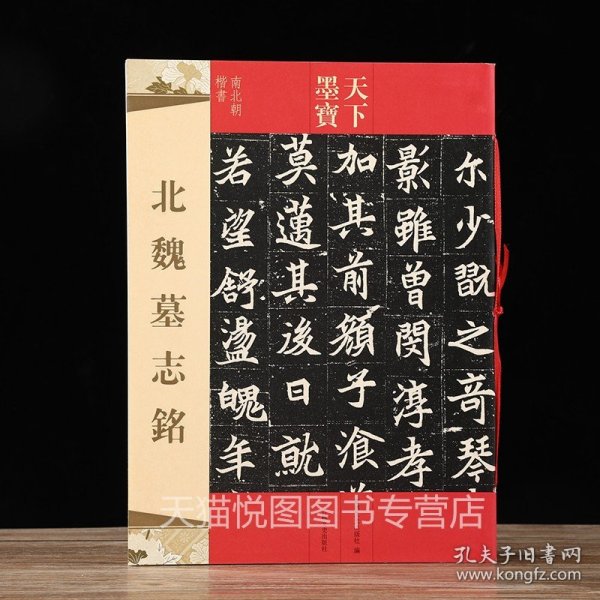 天下
墨寶
南北朝
楷書
北魏墓志銘
尔少翫之竒琴
影雖曾閔淳孝
加其前顏子飡道
莫邁其後日就
若望舒盪魄年
版社 編
出版社
天猫悦图图书专营店
孔夫子旧书网
www.kongfz.com